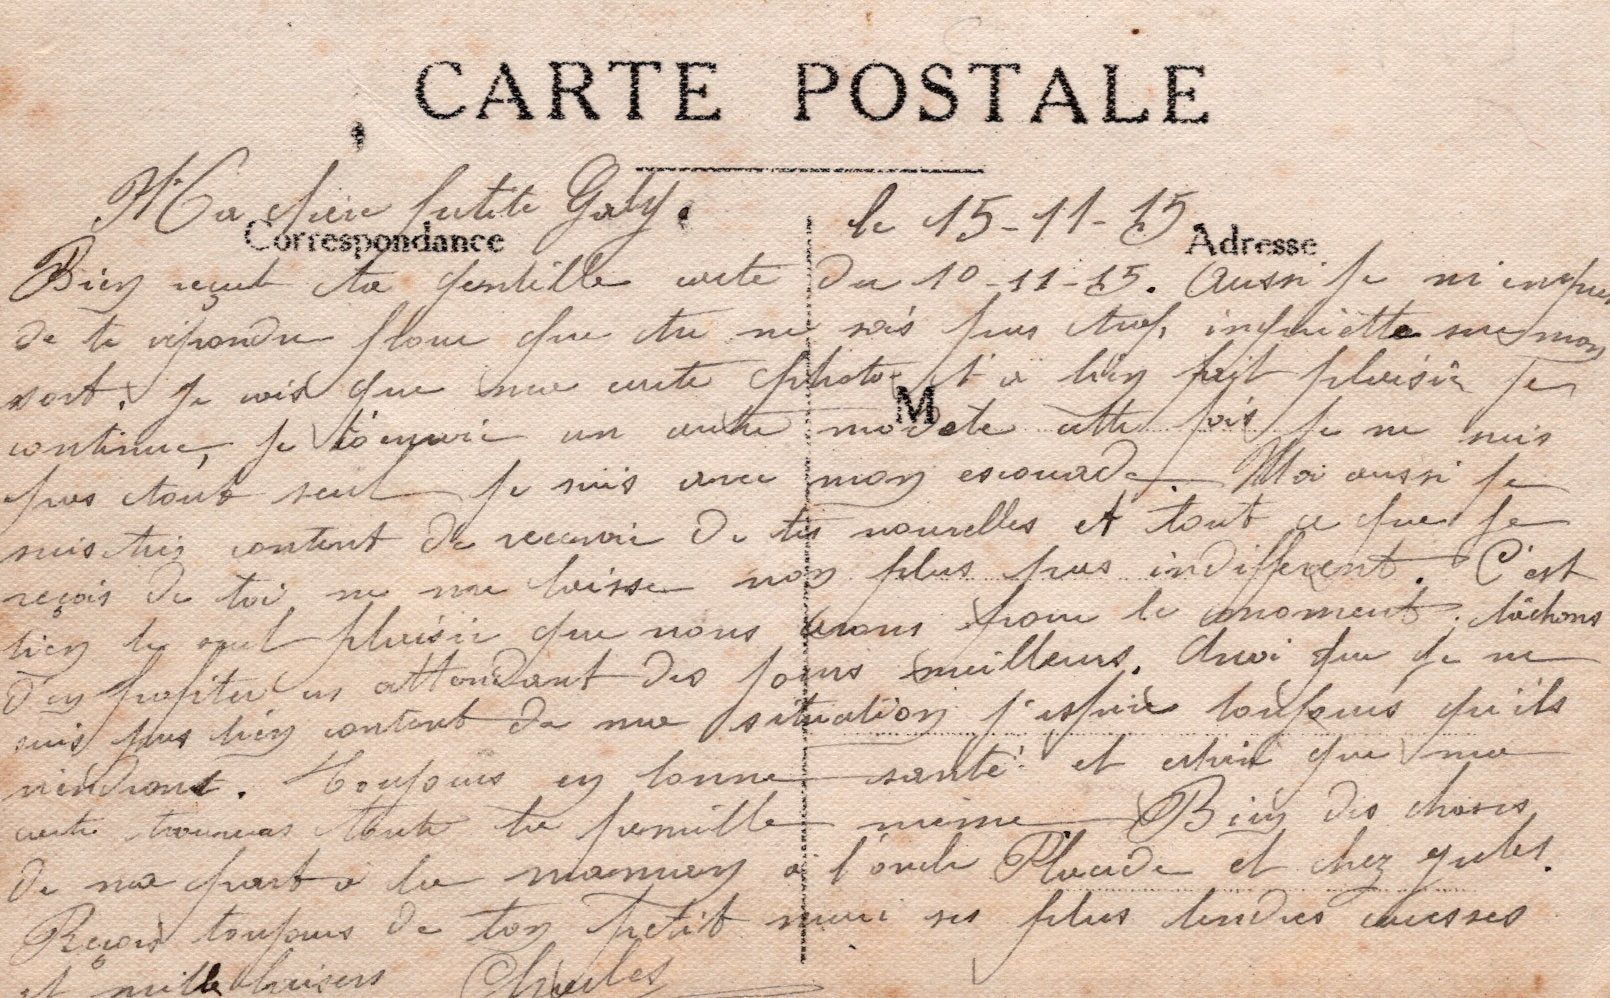 CARTE POSTALE
Ma chère petite Gaby. le 15-11-15
Correspondance Adresse
Bien reçut ta gentille carte du 10-11-15. Aussi je m'empres
de te répondre pour que tu ne sois pas trop inquiètte sur mon
sort. Je vois que ma carte photo t'a bien fait plaisir Je
M
continue, je t'envoie un autre modele cette fois je ne suis
pas tout seul je suis avec mon escouade Moi aussi je
suis très content de recevoir de tes nouvelles et tout ce que je
reçois de toi ne me laisse non plus pas indifferent. C'est
bien le seul plaisir que nous avons pour le moment. tâchons
d'en profiter en attendant des jours meilleurs. Quoi que je ne
suis pas bien content de ma situation j'espère toujours qu'ils
viendront. Toujours en bonne santé et que ma
carte trouveras toute ta famille même Bien des choses
de ma part a ta maman a l'oncle Placide et chez Jules.
Reçois toujours de ton petit mari ses plus tendres caresses
et mille baisers Charles